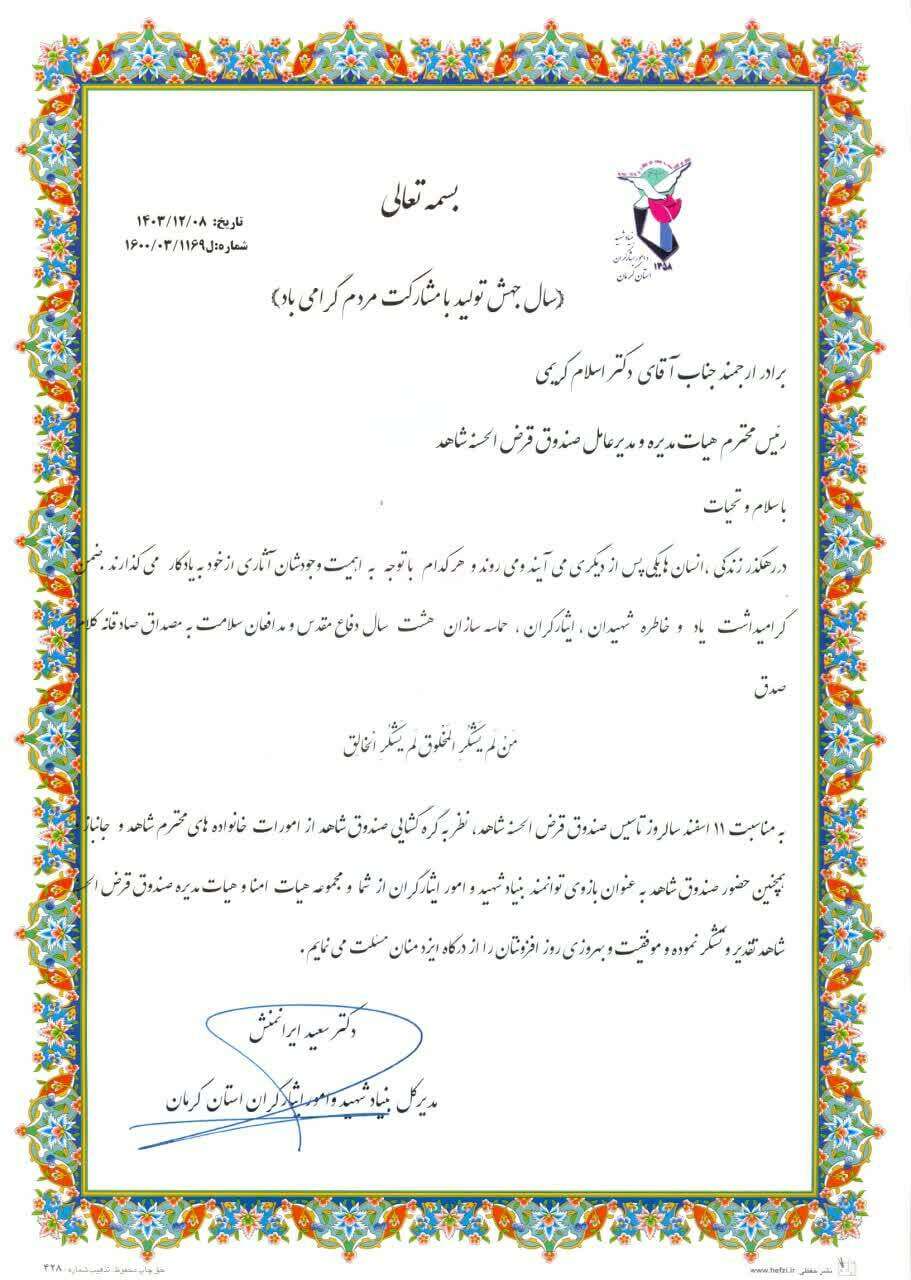 بسمه تعالی
تاریخ: ۱۴۰۳/۱۲/۰۸
شماره:ل۱۶۰۰/۰۳/۱۱۶۹
بنیاد شهید
و امور ایثارگران
استان کرمان
۱۳۵۸
(سال جهش تولید با مشارکت مردم گرامی باد)
برادر ارجمند جناب آقای دکتر اسلام کریمی
رئیس محترم هیات مدیره و مدیرعامل صندوق قرض الحسنه شاهد
باسلام و تحیات
در رهگذر زندگی ،انسان هایکی پس از دیگری می آیند ومی روند و هرکدام باتوجه به اهمیت وجودشان آثاری از خود به یادگار می گذارند .ضمن
گرامیداشت یاد و خاطره شهیدان ، ایثارگران ، حماسه سازان هشت سال دفاع مقدس و مدافعان سلامت به مصداق صادقانه کلام
صدق
مَن لَم یَشکُرِ المَخلوق لَم یَشکُرِ الخالِق
به مناسبت ۱۱ اسفند سالروز تاسیس صندوق قرض الحسنه شاهد، نظر به گره گشایی صندوق شاهد از امورات خانواده های محترم شاهد و جانباز
همچنین حضور صندوق شاهد به عنوان بازوی توانمند بنیاد شهید و امور ایثارگران از شما و مجموعه هیات امنا و هیات مدیره صندوق قرض
شاهد تقدیر و تشکر نموده و موفقیت و بهروزی روز افزونتان را از درگاه ایزد منان مسئلت می نمایم .
دکتر سعید ایرانمنش
مدیرکل بنیاد شهید و امور ایثارگران استان کرمان
نشر حفظی www.hefzi.ir
حق چاپ محفوظ. تذهیب شماره: ۴۲۸